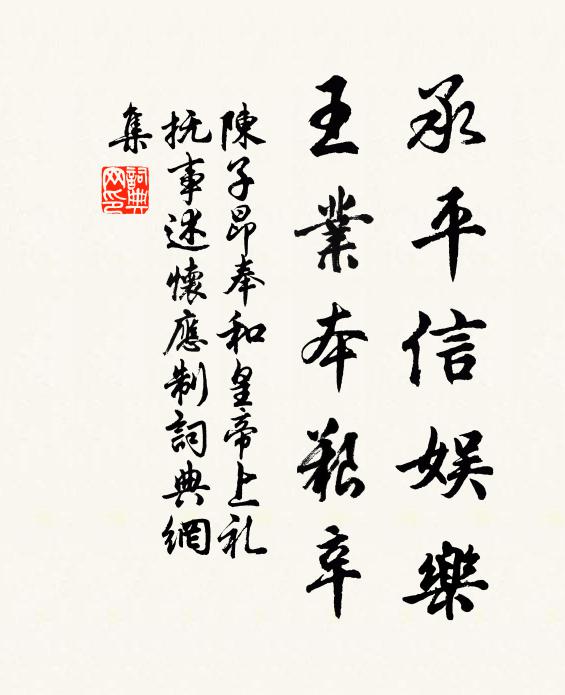 承平信娱樂
王業本艱辛
陳子昂奉和皇帝上礼
抚事述懷應制詞典網
集
詞典
网印